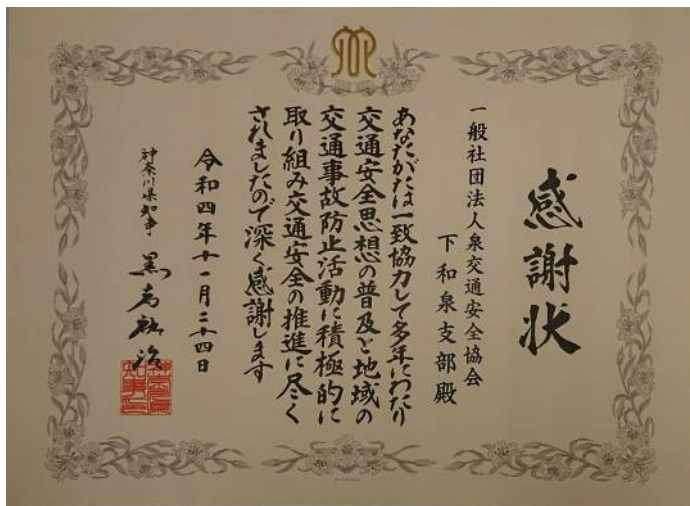 感謝状
一般社団法人泉交通安全協会
下和泉支部殿
あなたがたは一致協力して多年にわたり
交通安全思想の普及と地域の
交通事故防止活動に積極的に
取り組み交通安全の推進に尽く
されましたので深く感謝します
令和四年十一月二十四日
神奈川県知事 黒岩祐治